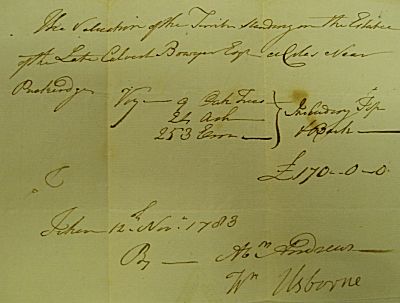 The Valuation of the Timber standing on the Estate
of the Late Edward Bowyer Esqr at Coles Near
Puckeridge
Vizt 9 Oak Trees
24 Ash
253 Elm
Including Top
& Bark
£170-0-0
Taken 12th Novr 1783
By Wm Andrews
Wm Usborne